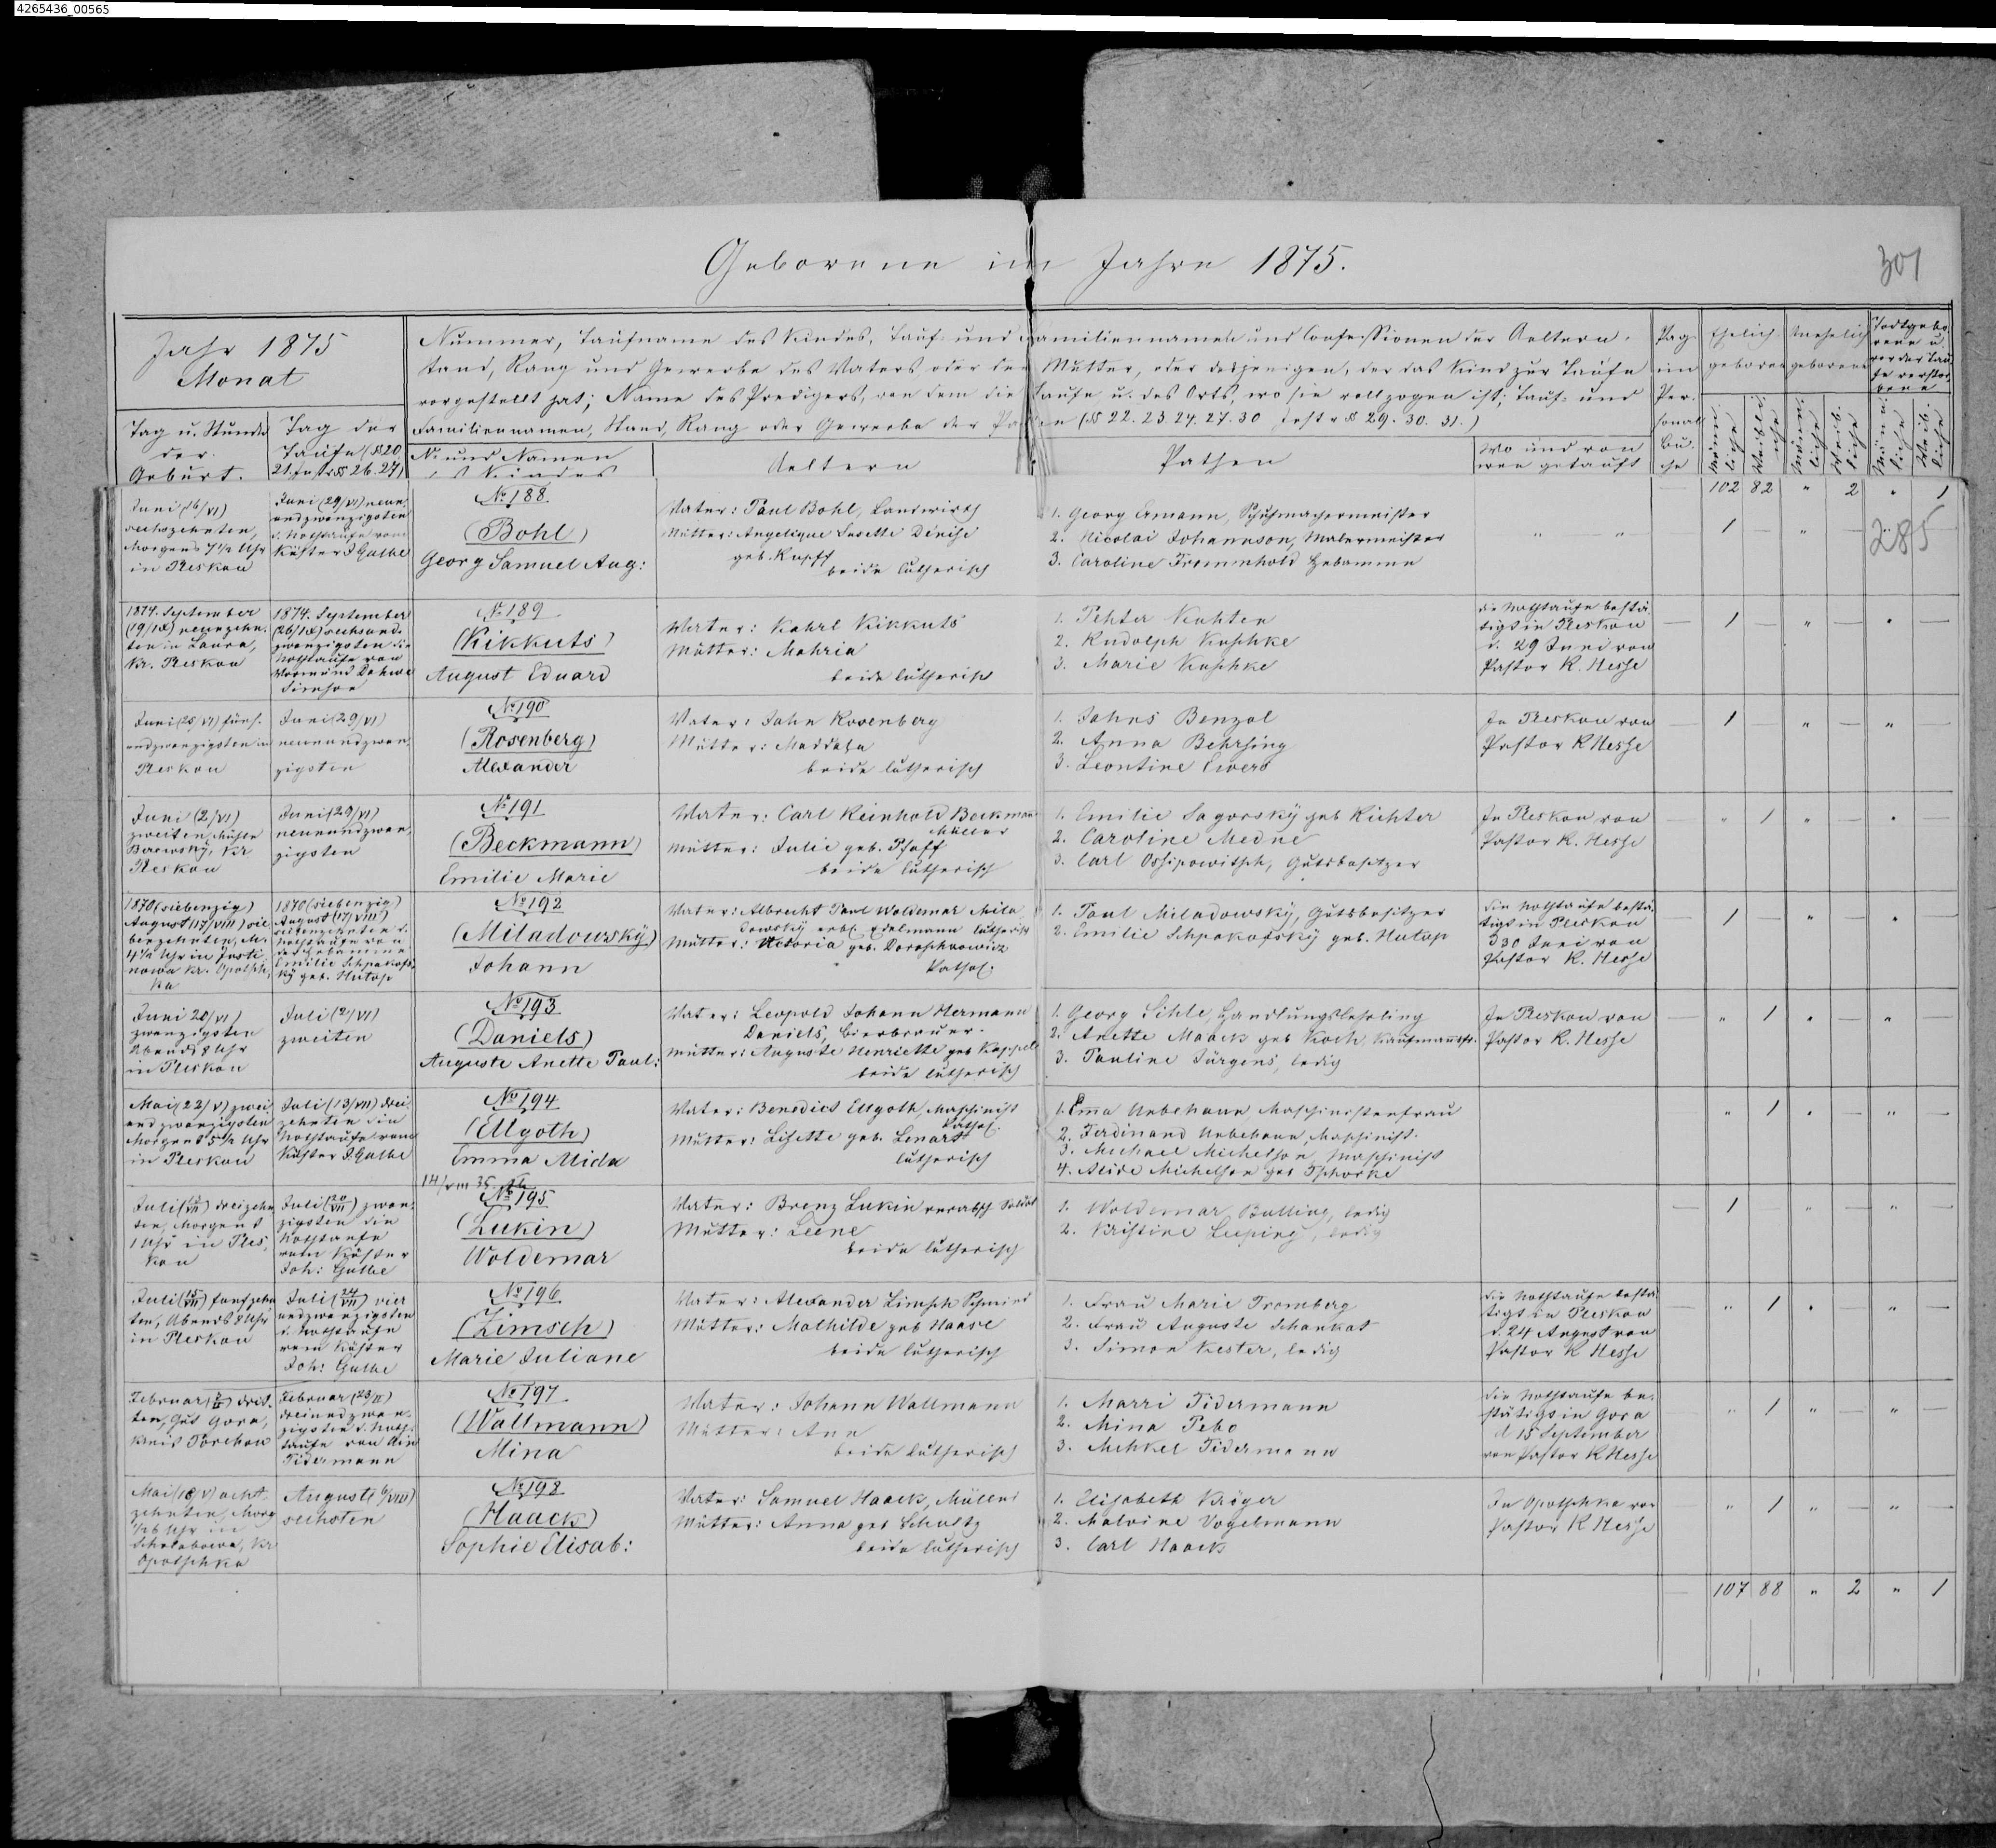 4265436_00565
Geborene im Jahre 1875.
301
Jahr 1875
Monat
Tag u. Stunde
der
Geburt.
Tag der
Taufe (§ 20.
21. Instr. §§ 26. 27)
Nummer, Taufname des Kindes, Tauf- und Familiennamen und Confessionen der Aeltern.
Stand, Rang und Gewerbe des Vaters oder der Mutter, oder desjenigen, der das Kind zur Taufe
vorgestellt hat; Name des Predigers, von dem die Taufe u. des Orts, wo sie vollzogen ist; Tauf- und
Familiennamen, Stand, Rang oder Gewerbe der Pathen (§§ 22. 23. 24. 27. 30 Instr. § 29. 30. 31.)
No und Namen
des Kindes
Aeltern
Pathen
Wo und von
wem getauft
Pag.
im
Per-
sonal
Bu-
che
Ehelich
geboren
Unehelich
geborene
Todtgebo-
rene u.
vor der Tau-
fe verstor-
bene
Männ-
liche
Weibli-
che
Männ-
liche
Weib-
liche
Männ-
liche
Weib-
liche
— 102 82 " 2 " 1
Juni (16/VI)
sechszehnten,
Morgens 7 1/2 Uhr
in Pleskau
Juni (29/VI) neun-
undzwanzigsten
d. Nothtaufe vom
Küster J Gulbe
No 188.
(Bohl)
Georg Samuel Aug:
Vater: Paul Bohl, Landwirth
Mutter: Angelique Lisette Denise
geb. Kupff
beide lutherisch
1. Georg Ermann, Schuhmachermeister
2. Nicolai Johannson, Malermeister
3. Caroline Frommhold Hebamme
" "
1 — " —
285
1874. September
(19/IX) neunzehn-
ten in Laura,
Kr. Pleskau
1874. September
(26/IX) sechsund-
zwanzigsten die
Nothtaufe von
No 189
(Kikkuts)
August Eduard
Vater: Kahrl Kikkuts
Mutter: Mahria
beide lutherisch
1. Pehter Kahten
2. Rudolph Kuschke
3. Marie Kuschke
die Nothtaufe bestä-
tigt in Pleskau
d. 29 Juni von
Pastor K. Hesse
— 1 — " — " —
Juni (25/VI) fünf-
undzwanzigsten in
Pleskau
Juni (29/VI)
neunundzwan-
zigsten
No 190
(Rosenberg)
Alexander
Vater: Jahn Rosenberg
Mutter: Maddala
beide lutherisch
1. Jahns Benzol
2. Anna Behrsing
3. Leontine Ewers
In Pleskau von
Pastor K Hesse
— 1 — " — " —
Juni (2/VI)
zweiten, Mühle
Berewsky, Kr
Pleskau
Juni (29/VI)
neunundzwan-
zigsten
No 191
(Beckmann)
Emilie Marie
Vater: Carl Reinhold Beckmann
Müller
Mutter: Julie geb. Pfaff
beide lutherisch
1. Emilie Sagorsky geb Richter
2. Caroline Medne
3. Carl Ossipowitsch, Gutsbesitzer
In Pleskau von
Pastor K. Hesse
— " 1 " — "
1870 (siebenzig)
August (17/VIII) sie-
benzehnten, M.
4 1/2 Uhr in Justi-
nowa Kr. Opotsch-
ka
1870 (siebenzig)
August (17/VIII)
siebenzehnten d.
Nothtaufe von
der Hebamme
Emilie Schpakofs-
ky geb. Hutop
No 192
(Miladowsky)
Johann
Vater: Albrecht Paul Woldemar Mila-
dowsky erbl. Edelmann lutherisch
Mutter: Victoria geb. Doroschkowicz
Kathol.
1. Paul Miladowsky, Gutsbesitzer
2. Emilie Schpakofsky geb. Hutop
die Nothtaufe bestä-
tigt in Pleskau
d 30 Juni von
Pastor K. Hesse
1 — " — " —
Juni 20/VI)
zwanzigsten
Abends 8 Uhr
in Pleskau
Juli (2/VII)
zweiten
No 193
(Daniels)
Auguste Anette Paul:
Vater: Leopold Johann Hermann
Daniels, Bierbrauer.
Mutter: Auguste Henriette geb Kappel
beide lutherisch
1. Georg Sihle, Handlungslehrling
2. Anette Maack geb Koch, Kaufmannsfr.
3. Pauline Jürgens, ledig
In Pleskau von
Pastor K. Hesse
— " 1 " — "
Mai (22/V) zwei-
undzwanzigsten
Morgens 5 1/2 Uhr
in Pleskau
Juli (13/VII) drei-
zehnten die
Nothtaufe vom
Küster J. Gulbe
No 194
(Ellgoth)
Emma Alida
Vater: Benedict Ellgoth, Maschinist
Kathol.
Mutter: Lisette geb. Lenart
lutherisch
1. Emma Unbehaun Maschinistenfrau
2. Ferdinand Unbehaun, Maschinist.
3. Michael Michelson, Maschinist
4. Alide Michelson geb Tschorke
" 1 " — " —
14/VIII 35.
Juli (13/VII) dreizehn-
ten, Morgens
1 Uhr in Ples-
kau
Juli (20/VII) zwan-
zigsten die
Nothtaufe
vom Küster
Joh: Gulbe
No 195
(Lukin)
Woldemar
Vater: Brenz Lukin verabsch Soldat
Mutter: Leene
beide lutherisch
1. Woldemar Balling, ledig
2. Kristine Leeping, ledig
— 1 — " — " —
Juli (15/VII) funfzehn-
ten, Abends 8 Uhr
in Pleskau
Juli (24/VII) vier-
undzwanzigsten
d. Nothtaufe
vom Küster
Joh: Gulbe
No 196
(Zimsch)
Marie Juliane
Vater: Alexander Zimsch Schmied
Mutter: Mathilde geb Haase
beide lutherisch
1. Frau Marie Tromberg
2. Frau Auguste Schankat
3. Simon Kester, ledig
die Nothtaufe bestä-
tigt in Pleskau
d. 24 August von
Pastor K Hesse
— " 1 " " —
ten, Gut Gora,
Kreis Porchow
Februar (23/II)
dreiundzwan-
zigsten d. Noth-
taufe von Ain
Tidermann
No 197
(Wallmann)
Mina
Vater: Johann Wallmann
Mutter: Ann
beide lutherisch
1. Marri Tidermann
2. Mina Pebo
3. Mihkel Tidermann
die Nothtaufe be-
stätigt in Gora
d 15 September
von Pastor K Hesse
" 1 " — " —
Mai (18/V) acht-
zehnten, Morg
1/2 6 Uhr in
Opotschka
August (6/VIII)
sechsten
No 198
(Haack)
Sophie Elisab:
Vater: Samuel Haack, Müller
Mutter: Anna geb Schultz
beide lutherisch
1. Elisabeth Kröger
2. Malvine Vogelmann
3. Carl Haack
In Opotschka von
Pastor K Hesse
" 1 " — " —
— 107 88 " 2 " 1